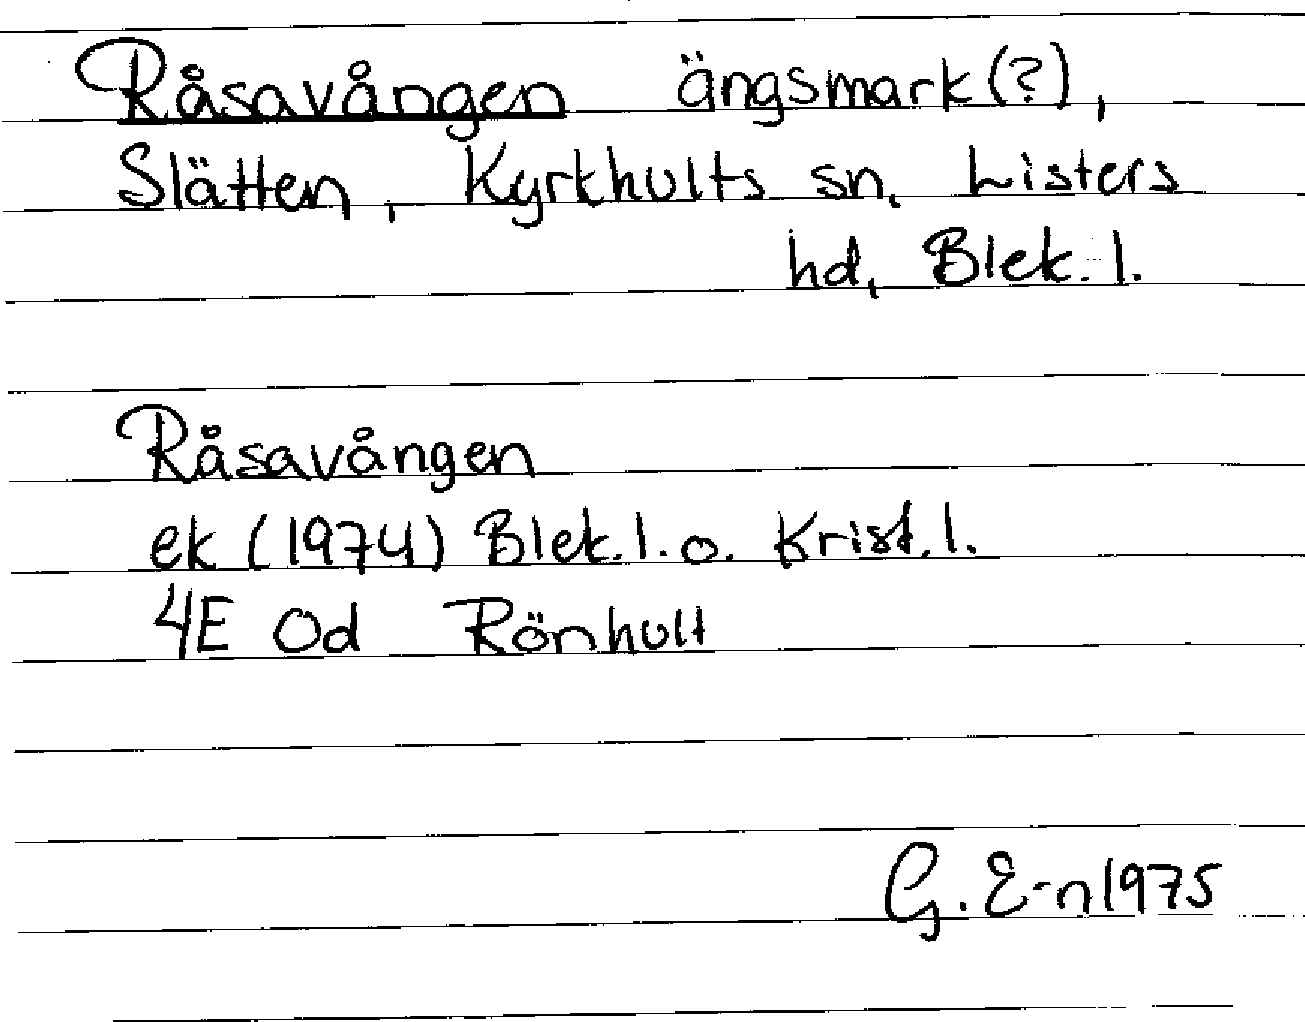 Råsavången ängsmark(?),
Slätten, Kyrkhults sn, Listers
hd, Blek. l.
Råsavången
ek (1974) Blek. l. o. Krist. l.
4E 0d Rönhult
G. E-n 1975